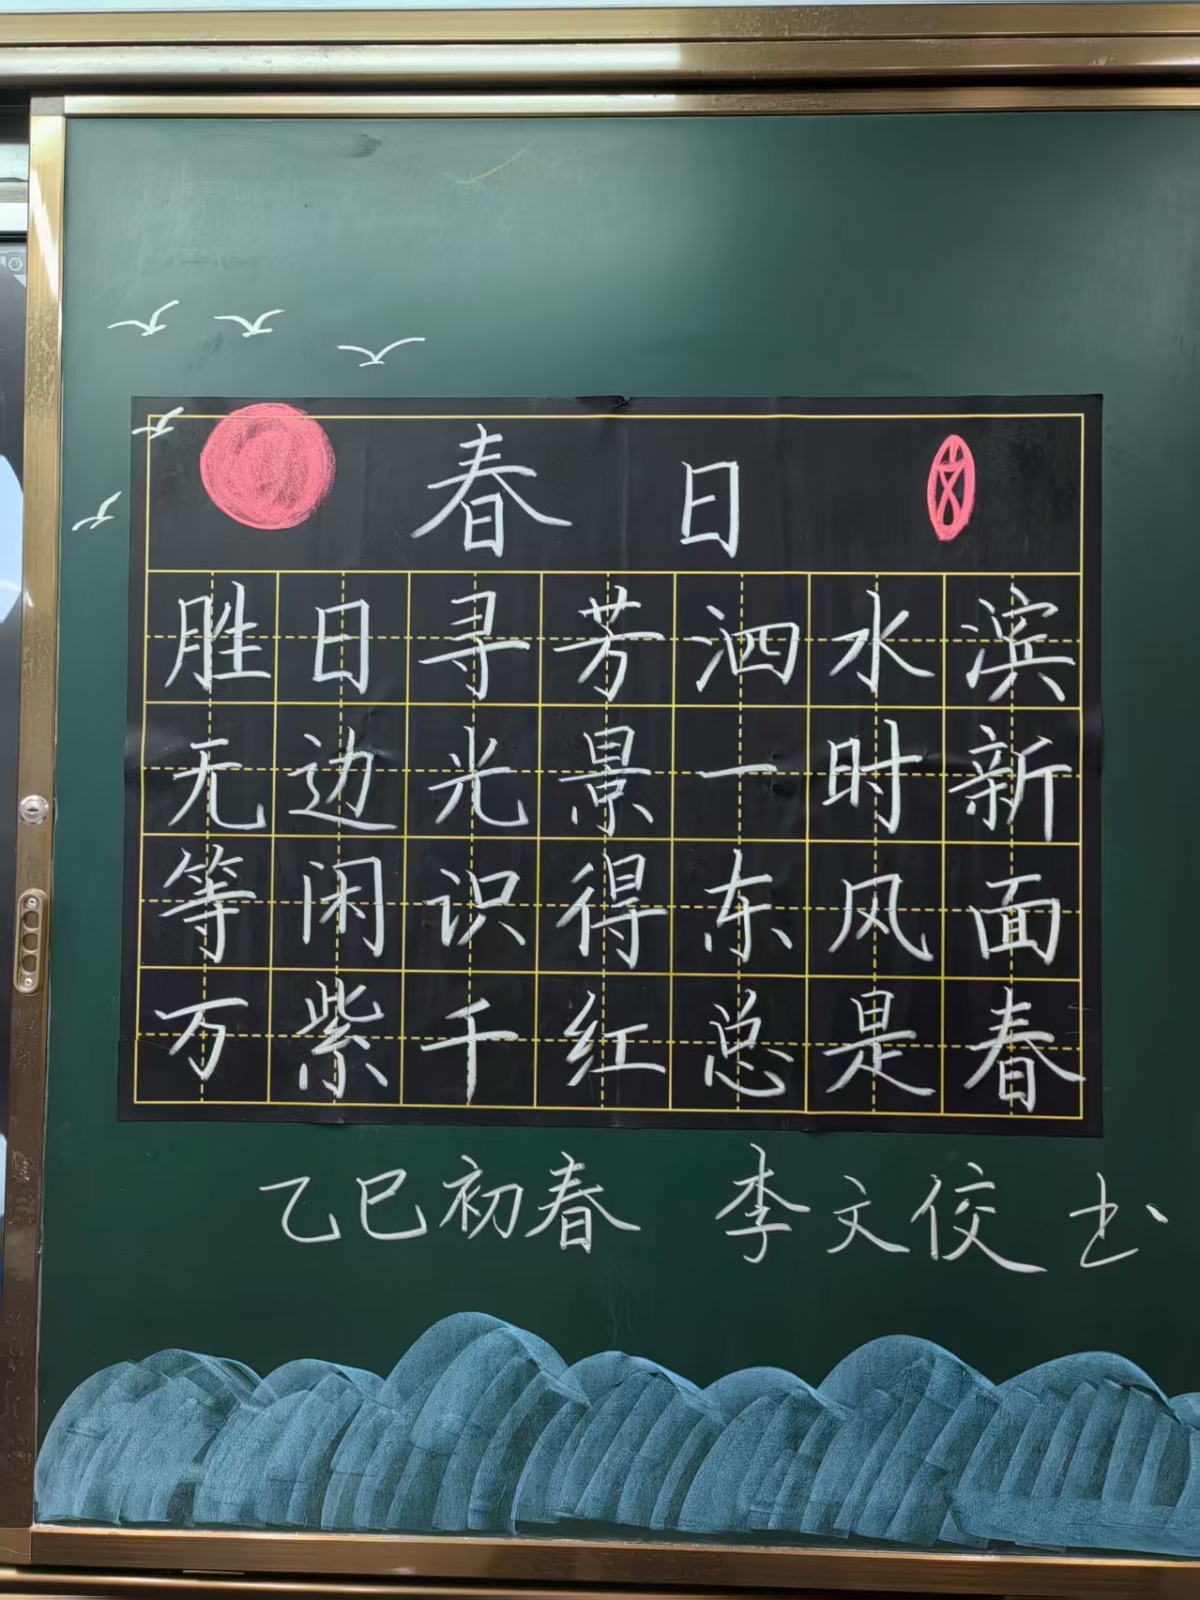 春日
胜日寻芳泗水滨
无边光景一时新
等闲识得东风面
万紫千红总是春
乙巳初春 李文佼 书